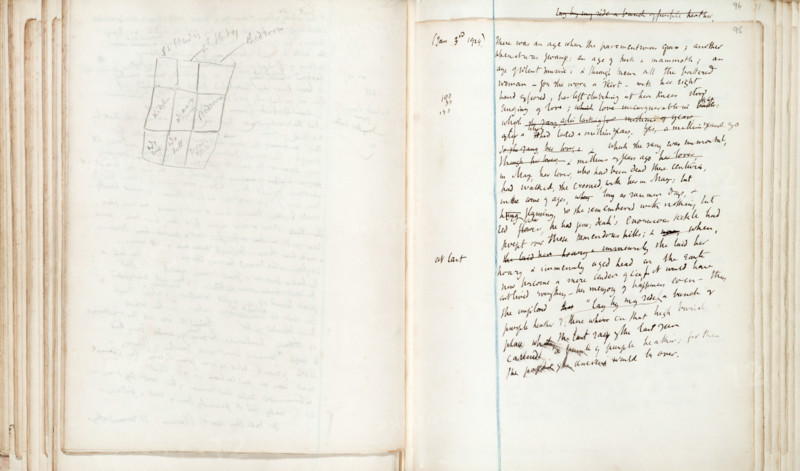 Study
Bedroom
Kitchen
Dining
Bedroom
lay by my side a bunch of purple heather.
96
95
(Jan 3rd 1924)
There was an age when the pavement was grass; another
when it was swamp; an age of tusk & mammoth; an
age of silent sunrise; & through them all the battered
woman - for she wore a skirt - with her right
hand exposed, her left clutching at her knees stood
singing of love; which love unconquerable in battle;
which
after lasted a million years, Yes, a million years ago
so she sang her love, & which she sang was immortal,
million of years ago her lover,
in May, her lover, who had been dead these centuries,
had walked, she crooned, with her in May; but
in the course of ages, long as summer days, &
flaming, so she remembered with nothing but
red flowers, he had gone; death's enormous sickle had
swept over those tremendous hills; & when,
at last
she laid her hoary & immensely she laid her
hoary & immensely aged head on the earth
now become a mere cinder of ice, it would have
outlived roughly - her memory of happiness even - then
she implored "lay by my side, a bunch of
purple heather", there where on that high burial
place the last rays of the last sun
caressed a bunch of purple heather; for then
the of the universe would be over.